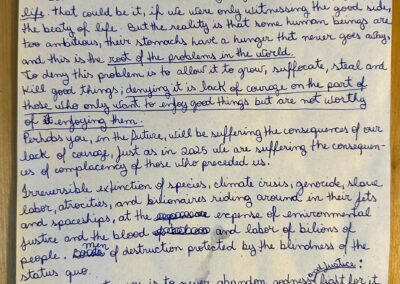 life. that could be it, if we were only witnessing the good side,
the beaty of life. But the reality is that some human beings are
too ambitious, their stomachs have a hunger that never goes away,
and this is the root of the problems in the world.
To deny this problem is to allow it to grow, suffocate, steal and
kill good things; denying it is lack of courage on the part of
those who only want to enjoy good things but are not worthy
of enjoying them.
Perhaps you, in the future, will be suffering the consequences of our
lack of courage, just as in 2025 we are suffering the consequen-
ces of complacency of those who preceded us.
Irreversible extinction of species, climate crisis, genocide, slave
labor, atrocities, and bilionaires riding around in their jets
and spaceships, at the expense of environmental
justice and the blood and labor of bilions of
people. men of destruction protected by the blindness of the
status quo.
and justice:
is to never abandon fight for it